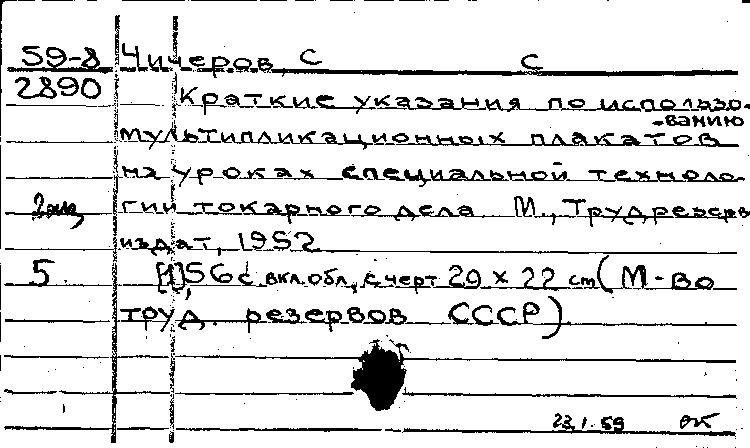 59-8 Чичеров, С С
2890 Краткие указания по использо-
-ванию
мультипликационных плакатов
на уроках специальной техноло-
2 экз, гии токарного дела. М., Трудрезерв
издат, 1952
5. [1], 56 с. вкл. обл., с черт 29 x 22 cm (М-во
труд. резервов СССР)
23.1.59 ОК